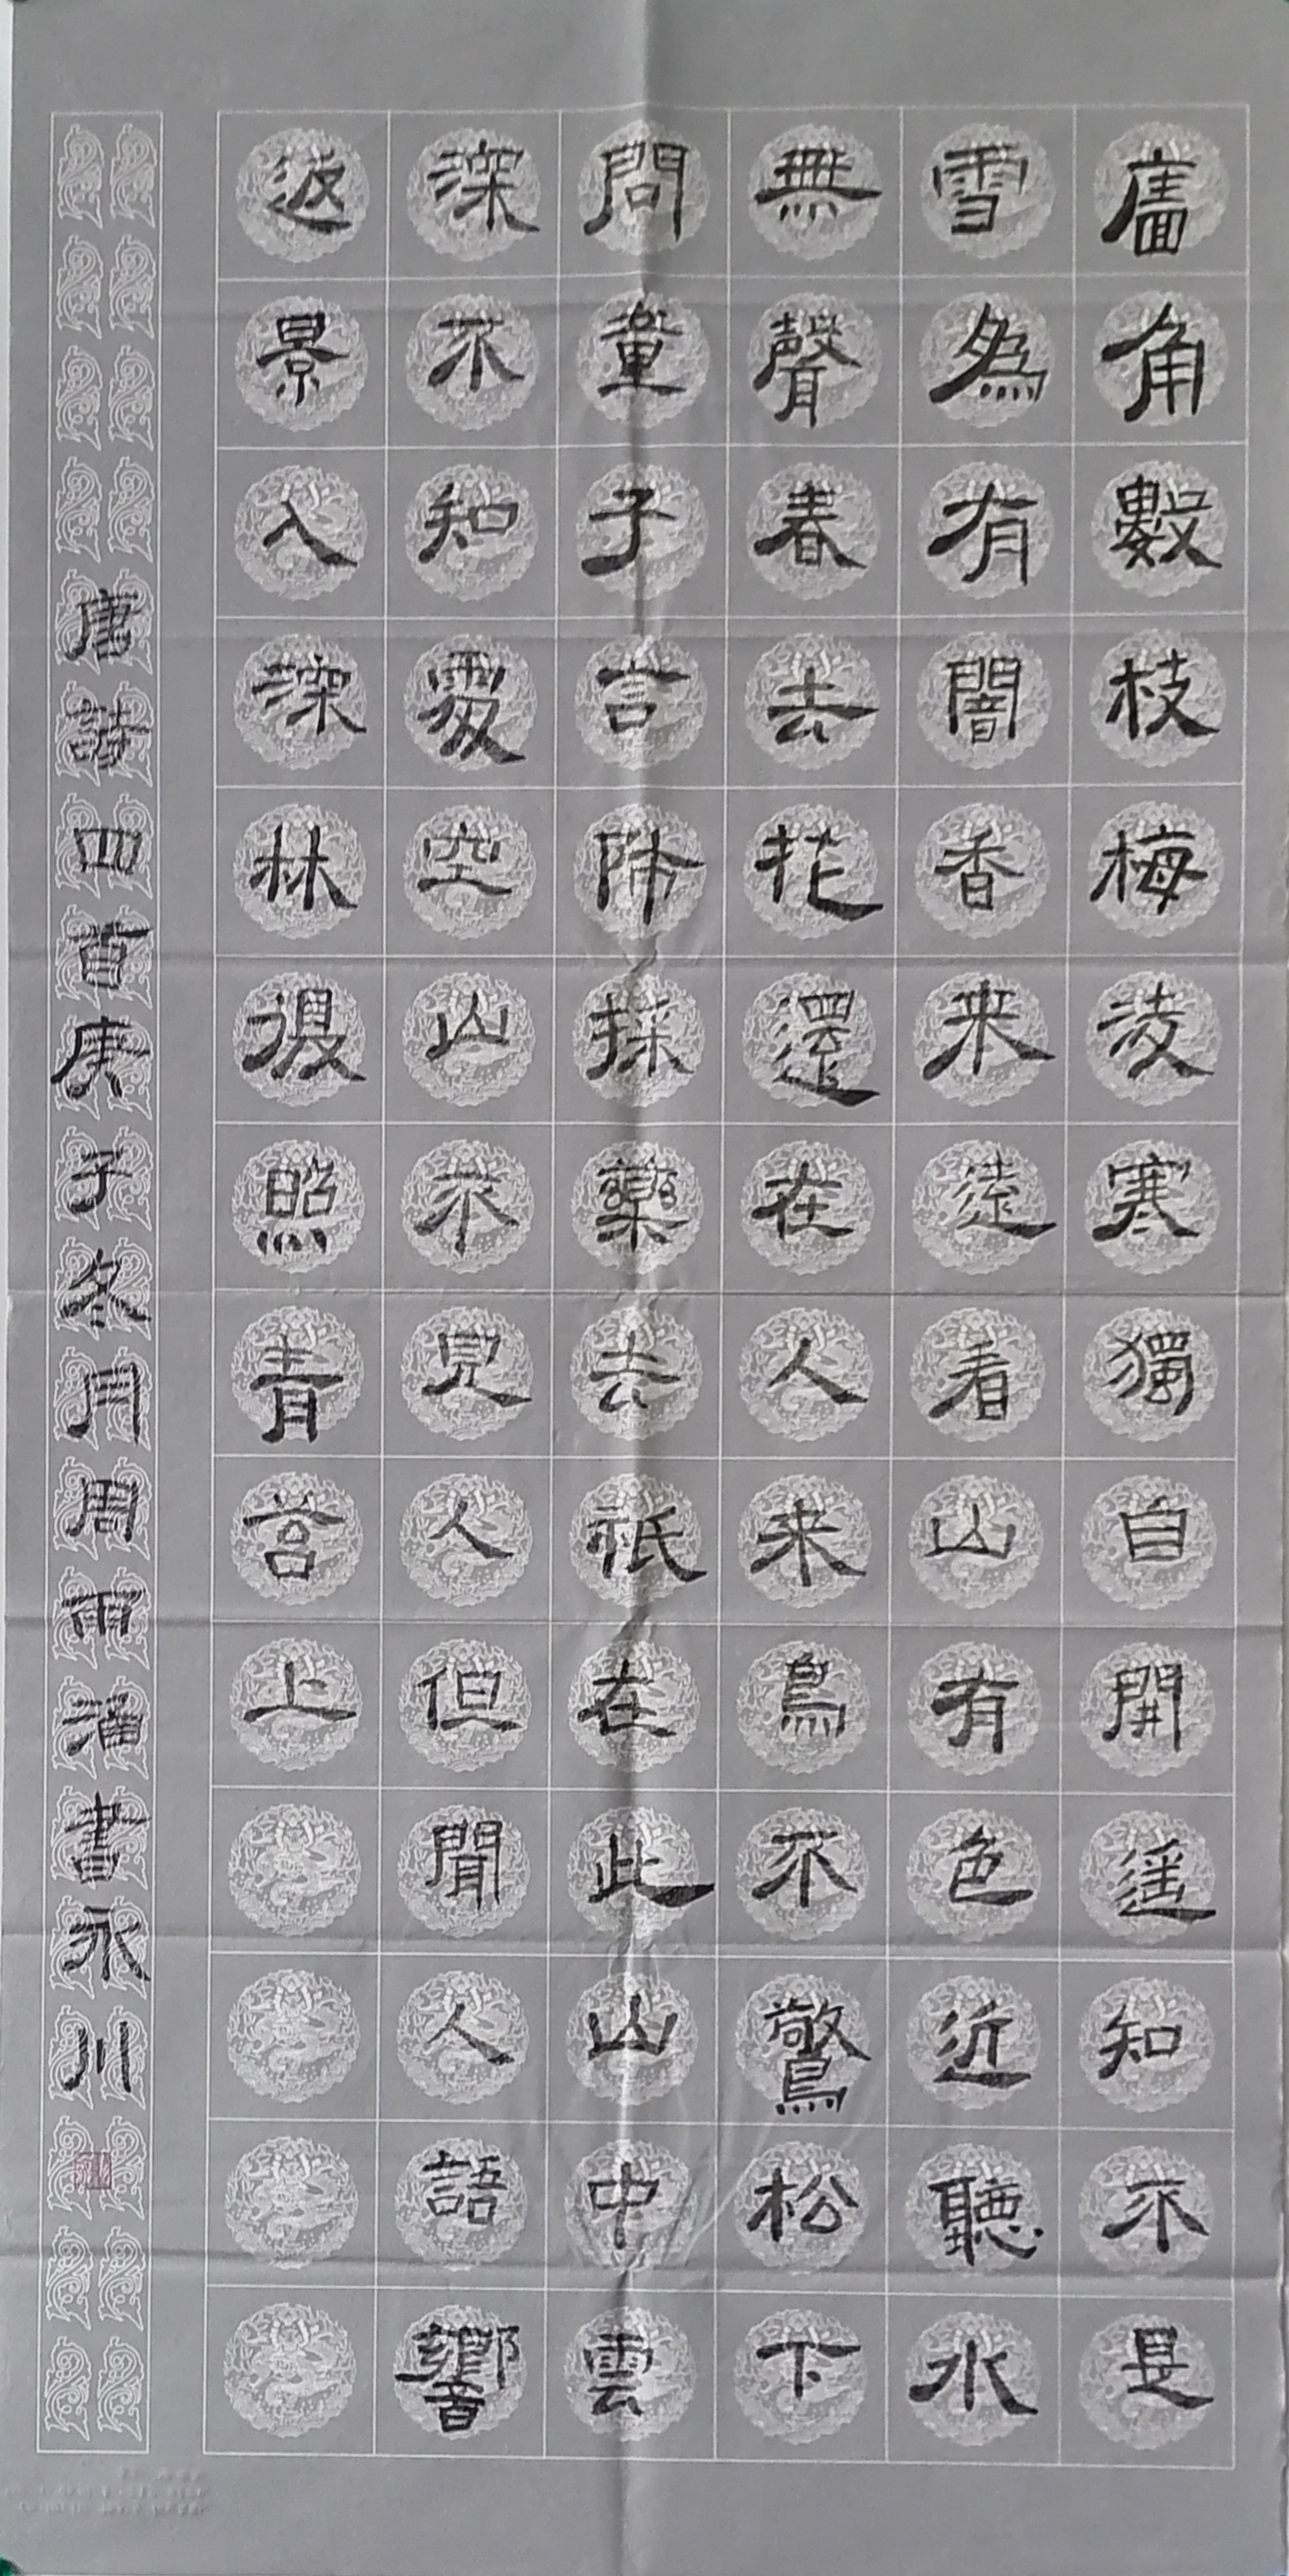 牆角數枝梅凌寒獨自開遥知不是
雪為有闇香来遠看山有色近聽水
無聲春去花還在人来鳥不驚松下
問童子言師採藥去祇在此山中雲
深不知處空山不見人但聞人語響
返景入深林復照青苔上
唐詩四首庚子冬月周雨涵書永川